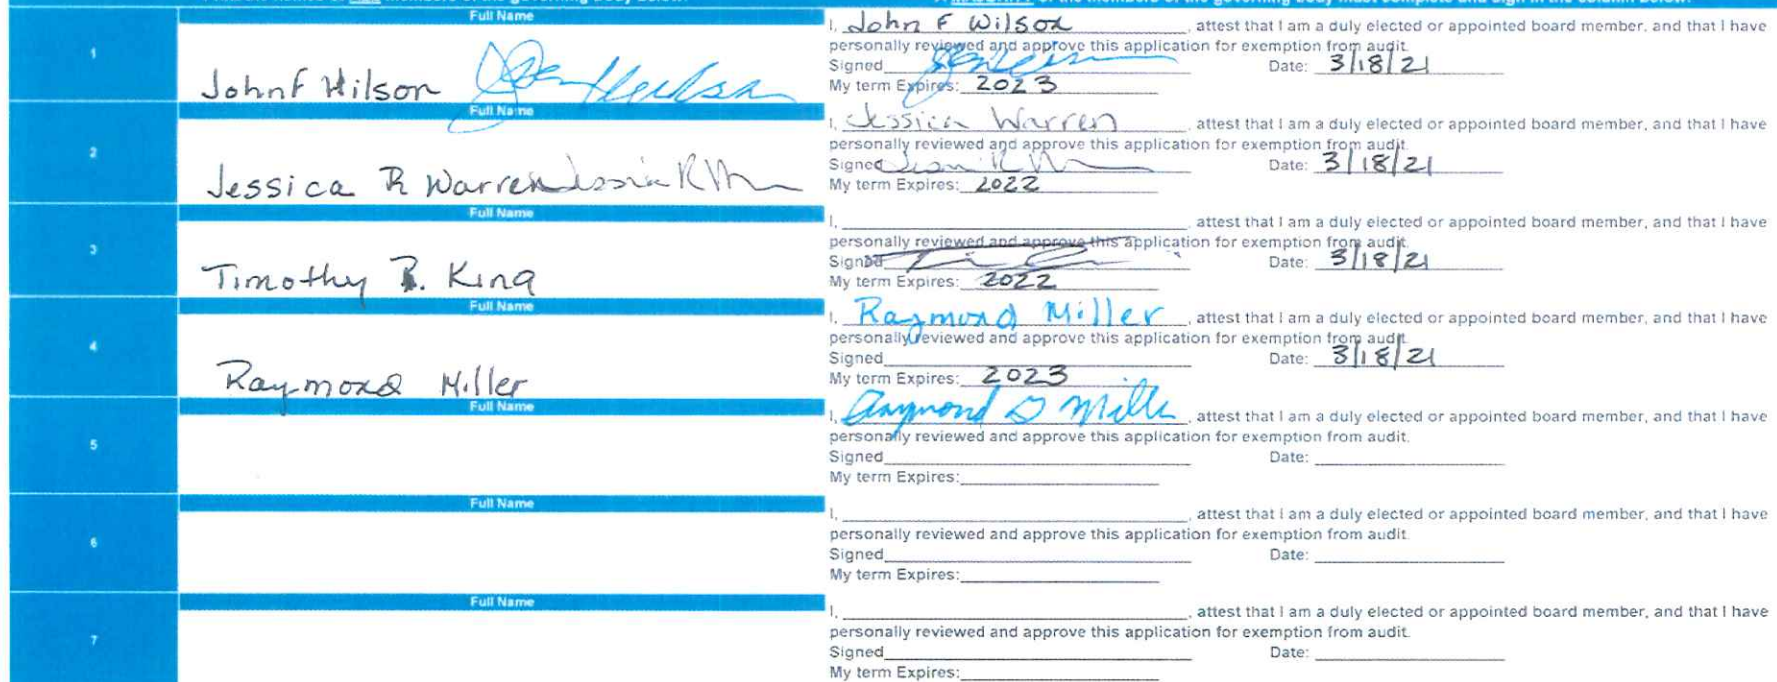 Full Name
I, John F Wilson, attest that I am a duly elected or appointed board member, and that I have
personally reviewed and approve this application for exemption from audit.
1
Signed Date: 3/18/21
John F Wilson
My term Expires: 2023
Full Name
I, Jessica Warren, attest that I am a duly elected or appointed board member, and that I have
personally reviewed and approve this application for exemption from audit.
2
Signed Date: 3/18/21
Jessica R Warren
My term Expires: 2022
Full Name
I, , attest that I am a duly elected or appointed board member, and that I have
personally reviewed and approve this application for exemption from audit.
3
Signed Date: 3/18/21
Timothy B. King
My term Expires: 2022
Full Name
I, Raymond Miller, attest that I am a duly elected or appointed board member, and that I have
personally reviewed and approve this application for exemption from audit.
4
Signed Date: 3/18/21
Raymond Miller
My term Expires: 2023
Full Name
I, Raymond D Miller, attest that I am a duly elected or appointed board member, and that I have
personally reviewed and approve this application for exemption from audit.
5
Signed Date:
My term Expires:
Full Name
I, , attest that I am a duly elected or appointed board member, and that I have
personally reviewed and approve this application for exemption from audit.
6
Signed Date:
My term Expires:
Full Name
I, , attest that I am a duly elected or appointed board member, and that I have
personally reviewed and approve this application for exemption from audit.
7
Signed Date:
My term Expires: